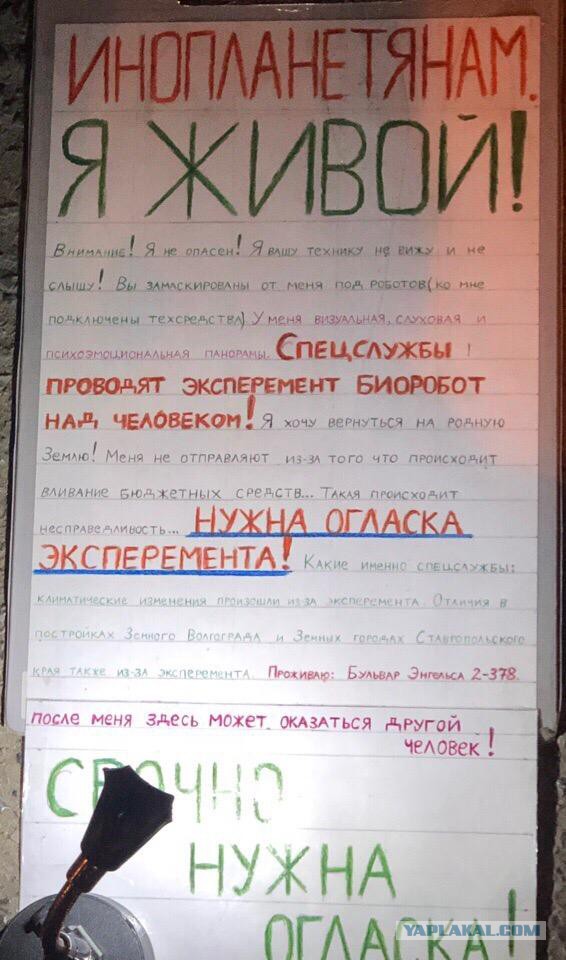 ИНОПЛАНЕТЯНАМ.
Я ЖИВОЙ!
Внимание! Я не опасен! Я вашу технику не вижу и не
слышу! Вы замаскированы от меня под роботов (ко мне
подключены техсредства) У меня визуальная, слуховая и
психоэмоциональная панорамы. Спецслужбы
проводят эксперемент биоробот
над человеком! Я хочу вернуться на родную
Землю! Меня не отправляют из-за того что происходит
вливание бюджетных средств... Такая происходит
несправедливость... НУЖНА ОГЛАСКА
ЭКСПЕРЕМЕНТА! Какие именно спецслужбы:
климатические изменения произошли из-за эксперемента. Отличия в
постройках Земного Волгограда и Земных городах Ставропольского
края также из-за эксперемента. Проживаю: Бульвар Энгельса 2-378.
после меня здесь может оказаться другой
человек!
СРОЧНО
НУЖНА
ОГЛАСКА!
YAPLAKAL.COM